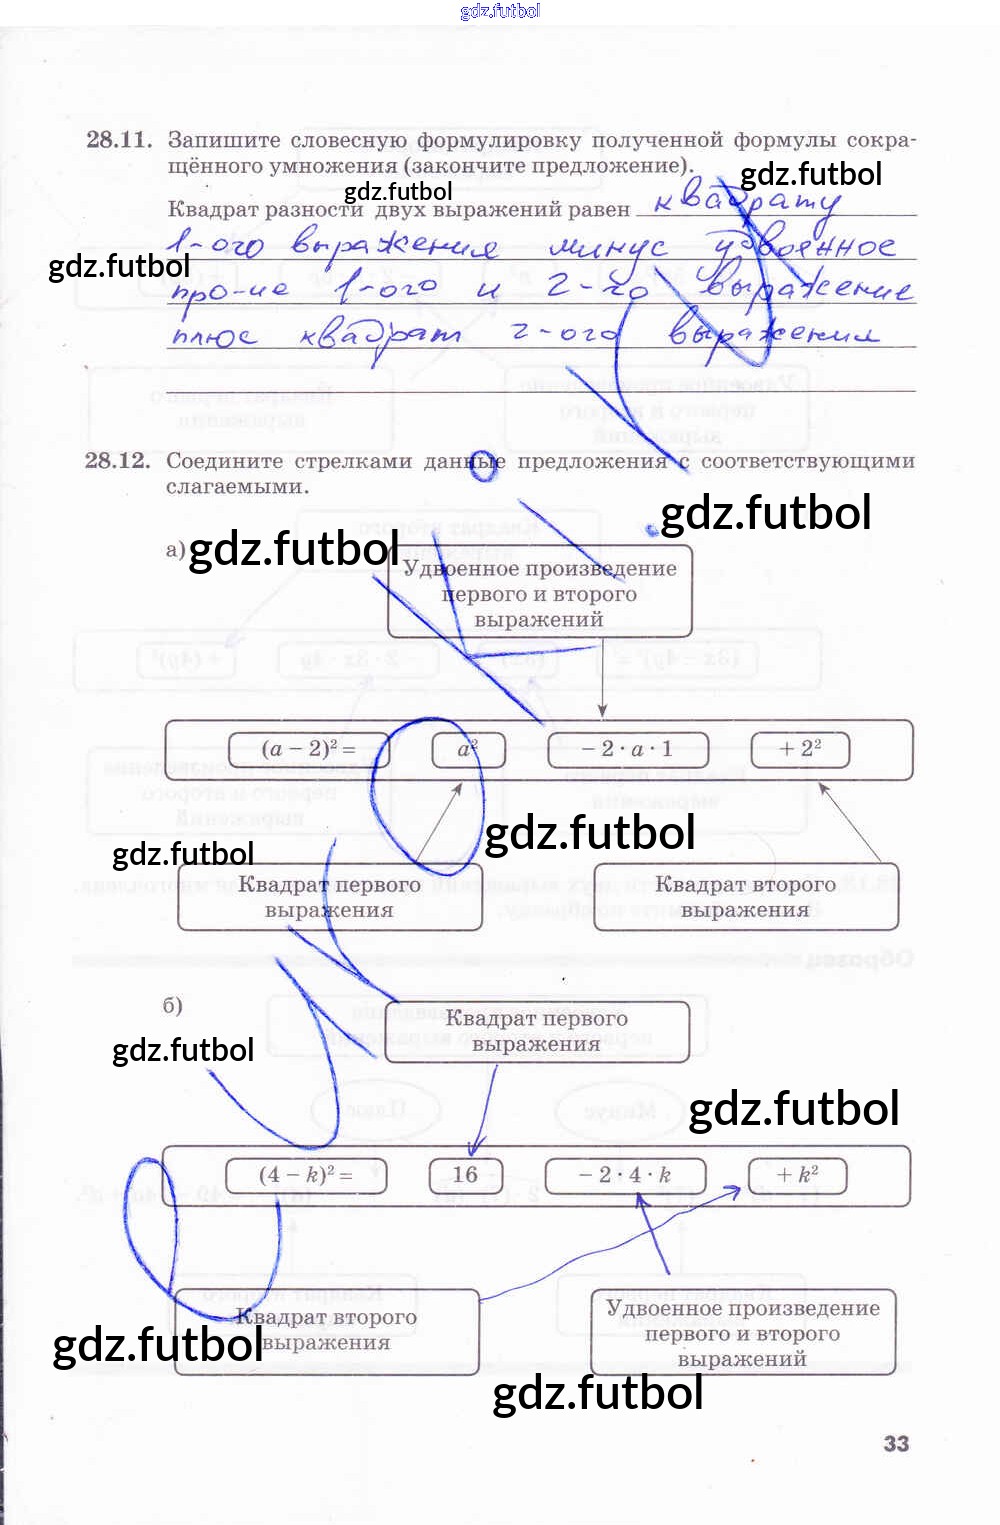 gdz.futbol
28.11. Запишите словесную формулировку полученной формулы сокра-
щённого умножения (закончите предложение).
gdz.futbol
gdz.futbol
Квадрат разности двух выражений равен квадрату
1-ого выражения минус удвоенное
gdz.futbol
про-ие 1-ого и 2-го выражение
плюс квадрат 2-ого выражения
28.12. Соедините стрелками данные предложения с соответствующими
слагаемыми.
gdz.futbol
а)
gdz.futbol
Удвоенное произведение
первого и второго
выражений
(a − 2)² = a² − 2 · a · 1 + 2²
gdz.futbol
gdz.futbol
Квадрат первого
выражения
Квадрат второго
выражения
б)
Квадрат первого
выражения
gdz.futbol
gdz.futbol
(4 − k)² = 16 − 2 · 4 · k + k²
Квадрат второго
выражения
Удвоенное произведение
первого и второго
выражений
gdz.futbol
gdz.futbol
33